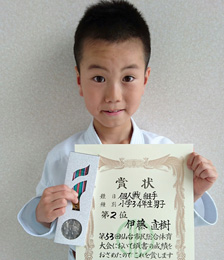 賞状
種目 個人戦 組手
種別 小学3.4年生男子
第2位
伊藤 直樹
第53回仙台市民総合体育
大会において頭書の成績を
おさめたのでこれを賞します